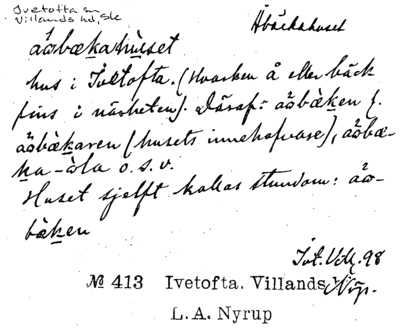 Ivetofta sn
Villands hd, Sk
Åbäckahuset
åöbækahuset
hus i Ivetofta. (Hvarken å eller bäck
fins i närheten). Däraf: åöbæken f.
åöbækaren (husets innehafvare), åöbæ-
ka-ola o.s.v.
Huset sjelft kallas stundom: åö-
bæken
Ivt. Vill. 98
№ 413 Ivetofta. Villands
Nyp.
L. A. Nyrup